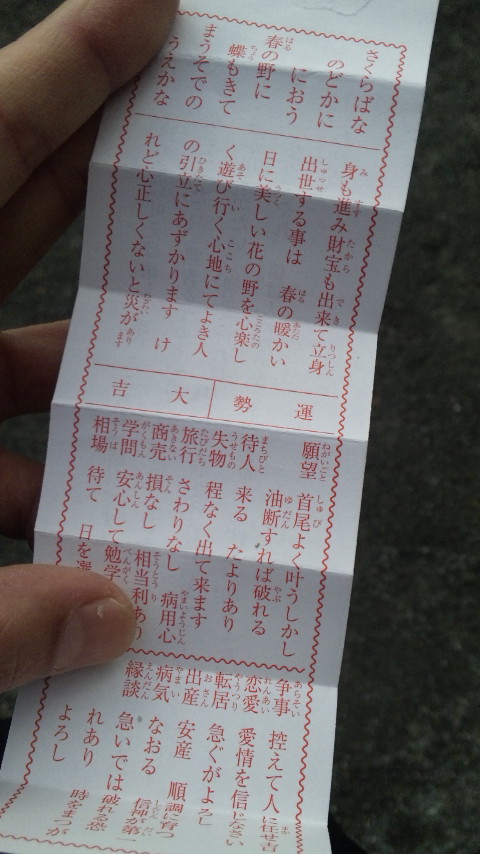 さくらばな
のどかに
におう
春の野に
蝶もきて
まうそでの
うえかな
身も進み財宝も出来て立身
出世する事は 春の暖かい
日に美しい花の野を心楽し
く遊び行く心地にてよき人
の引立にあずかります け
れど心正しくないと災が有ます
運勢 大吉
願望 首尾よく叶うしかし
油断すれば破れる
待人 来る たよりあり
失物 程なく出て来ます
旅行 さわりなし 病用心
商売 損なし 相当利あり
学問 安心して勉学
相場 待て 日を選
争事 控えて人に任せ吉
恋愛 愛情を信じなさい
転居 急ぐがよろし
出産 安産 順調に育つ
病気 なおる 信神が第一
縁談 急いでは破れる恐
れあり 時をまつが
よろし